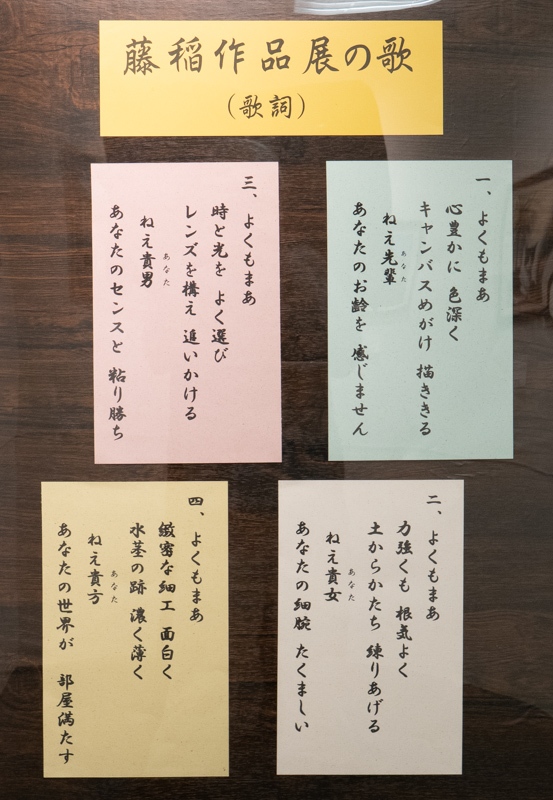 藤稲作品展の歌
（歌詞）
一、よくもまあ
心豊かに 色深く
キャンバスめがけ 描ききる
ねえ先輩
あなた
あなたのお齢を 感じません
二、よくもまあ
力強くも 根気よく
土からかたち 練りあげる
ねえ貴女
あなた
あなたの細腕 たくましい
三、よくもまあ
時と光を よく選び
レンズを構え 追いかける
ねえ貴男
あなた
あなたのセンスと 粘り勝ち
四、よくもまあ
緻密な細工 面白く
水茎の跡 濃く薄く
ねえ貴方
あなた
あなたの世界が 部屋満たす